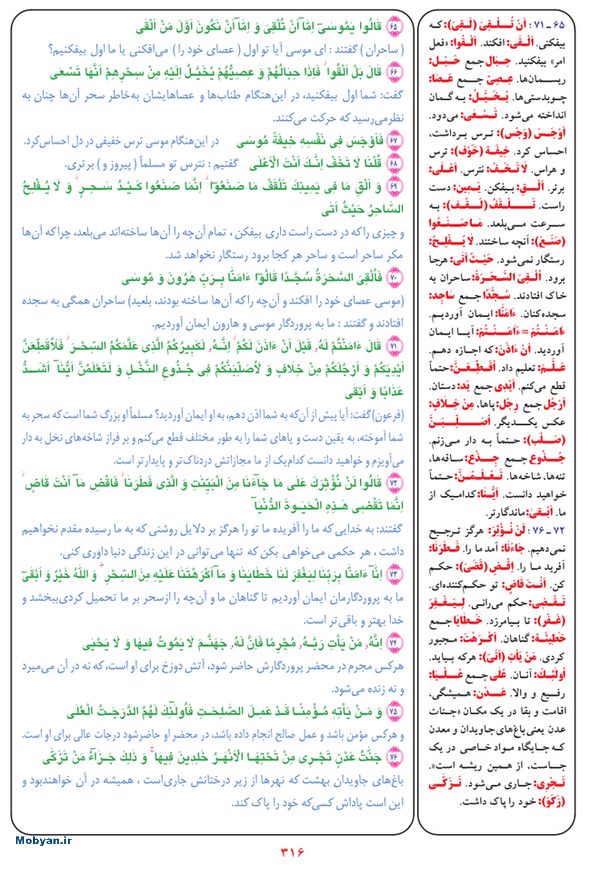 ۶۵ قَالُوا یَمُوسَیٓ اِمَّآ اَنْ تُلْقِیَ وَ اِمَّآ اَنْ نَکُونَ اَوَّلَ مَنْ اَلْقَی
( ساحران ) گفتند : ای موسی آیا تو اول ( عصای خود را ) می‌افکنی یا ما اول بیفکنیم؟
۶۶ قَالَ بَلْ اَلْقُوا ۖ فَاِذَا حِبَالُهُمْ وَ عِصِیُّهُمْ یُخَیَّلُ اِلَیْهِ مِنْ سِحْرِهِمْ اَنَّهَا تَسْعَی
گفت: شما اول بیفکنید، در این‌هنگام طناب‌ها و عصاهایشان به‌خاطر سحر آن‌ها چنان به
نظر می‌رسید که حرکت می‌کنند.
۶۷ فَاَوْجَسَ فِی نَفْسِهِ خِیفَةً مُوسَی در این‌هنگام موسی ترس خفیفی در دل احساس‌کرد.
۶۸ قُلْنَا لَا تَخَفْ اِنَّکَ اَنْتَ الْاَعْلَی گفتیم : نترس تو مسلماً ( پیروز و ) برتری.
۶۹ وَ اَلْقِ مَا فِی یَمِینِکَ تَلْقَفْ مَا صَنَعُوٓا ۖ اِنَّمَا صَنَعُوا کَیْدُ سَحِرٍ ۖ وَ لَا یُفْلِحُ
السَّاحِرُ حَیْثُ اَتَی
و چیزی را که در دست راست داری بیفکن ، تمام آن‌چه را آن‌ها ساخته‌اند می‌بلعد، چراکه آن‌ها
مکر ساحر است و ساحر هر کجا برود رستگار نخواهد شد.
۷۰ فَاُلْقِیَ السَّحَرَةُ سُجَّدًا قَالُوٓا ءَامَنَّا بِرَبِّ هَرُونَ وَ مُوسَی
(موسی عصای خود را افکند و آن‌چه را که آن‌ها ساخته بودند، بلعید) ساحران همگی به سجده
افتادند و گفتند : ما به پروردگار موسی و هارون ایمان آوردیم.
۷۱ قَالَ ءَامَنْتُمْ لَهُ قَبْلَ اَنْ ءَاذَنَ لَکُمْ ۖ اِنَّهُ لَکَبِیرُکُمُ الَّذِی عَلَّمَکُمُ السِّحْرَ ۖ فَلَاُقَطِّعَنَّ
اَیْدِیَکُمْ وَ اَرْجُلَکُمْ مِنْ خِلَافٍ وَ لَاُصَلِّبَنَّکُمْ فِی جُذُوعِ النَّخْلِ وَ لَتَعْلَمُنَّ اَیُّنَآ اَشَدُّ
عَذَابًا وَ اَبْقَی
(فرعون)گفت: آیا پیش از آن‌که به شما اذن دهم، به او ایمان آوردید؟ مسلماً او بزرگ شما است که سحر به
شما آموخته، به یقین دست و پاهای شما را به طور مختلف قطع می‌کنم و بر فراز شاخه‌های نخل به دار
می‌آویزم و خواهید دانست کدام‌یک از ما مجازاتش دردناک‌تر و پایدارتر است.
۷۲ قَالُوا لَنْ نُؤْثِرَکَ عَلَی مَا جَآءَنَا مِنَ الْبَیِّنَتِ وَ الَّذِی فَطَرَنَا ۖ فَاقْضِ مَآ اَنْتَ قَاضٍ ۖ
اِنَّمَا تَقْضِی هَذِهِ الْحَیَوةَ الدُّنْیَآ
گفتند: به خدایی که ما را آفریده ما تو را هرگز بر دلایل روشنی که به ما رسیده مقدم نخواهیم
داشت ، هر حکمی می‌خواهی بکن که تنها می‌توانی در این زندگی دنیا داوری کنی.
۷۳ اِنَّآ ءَامَنَّا بِرَبِّنَا لِیَغْفِرَ لَنَا خَطَایَنَا وَ مَآ اَکْرَهْتَنَا عَلَیْهِ مِنَ السِّحْرِ ۗ وَ اللهُ خَیْرٌ وَ اَبْقَیٓ
ما به پروردگارمان ایمان آوردیم تا گناهان ما و آن‌چه را ازسحر بر ما تحمیل کردی‌ببخشد و
خدا بهتر و باقی‌تر است.
۷۴ اِنَّهُ مَنْ یَأْتِ رَبَّهُ مُجْرِمًا فَاِنَّ لَهُ جَهَنَّمَ لَا یَمُوتُ فِیهَا وَ لَا یَحْیَی
هرکس مجرم در محضر پروردگارش حاضر شود، آتش دوزخ برای او است، که نه در آن می‌میرد
و نه زنده می‌شود.
۷۵ وَ مَنْ یَأْتِهِ مُؤْمِنًا قَدْ عَمِلَ الصَّلِحَتِ فَاُولَئِکَ لَهُمُ الدَّرَجَتُ الْعُلَی
و هرکس مؤمن باشد و عمل صالح انجام داده باشد، در محضر او حاضرشود درجات عالی برای او است.
۷۶ جَنَّتُ عَدْنٍ تَجْرِی مِنْ تَحْتِهَا الْاَنْهَرُ خَلِدِینَ فِیهَا ۚ وَ ذَلِکَ جَزَآءُ مَنْ تَزَکَّی
باغ‌های جاویدان بهشت که نهرها از زیر درختانش جاری‌است ، همیشه در آن خواهندبود و
این است پاداش کسی‌که خود را پاک کند.
۶۵ ـ ۷۱ : اَنْ تُلْقِیَ (لَقِیَ): که
بیفکنی. اَلْقَی: افکند. اَلْقُوا: «فعل
امر» بیفکنید. حِبَال جمع حَبْل:
ریسمان‌ها. عِصِیّ جمع عَصَا:
چوبدستی‌ها. یُخَیَّلُ: به گمان
انداخته می‌شود. تَسْعَی: می‌دود.
اَوْجَسَ (وَجَسَ): ترس برداشت،
احساس کرد. خِیفَة (خَوْف): ترس
و هراس. لَا تَخَفْ: نترس. اَعْلَی:
برتر. اَلْقِ: بیفکن. یَمِین: دست
راست. تَلْقَفْ (لَقِفَ): به
سرعت می‌بلعد. مَا صَنَعُوا
(صَنَعَ): آنچه ساختند. لَا یُفْلِحُ:
رستگار نمی‌شود. حَیْثُ اَتَی: هرجا
برود. اُلْقِیَ السَّحَرَةُ: ساحران به
خاک افتادند. سُجَّدًا جمع سَاجِد:
سجده‌کنان. ءَامَنَّا: ایمان آوردیم.
ءَامَنْتُمْ = ءَاَمَنْتُمْ: آیا ایمان
آوردید. اَنْ ءَاذَنَ: که اجازه دهم.
عَلَّمَ: تعلیم داد. اُقَطِّعَنَّ: حتماً
قطع می‌کنم. اَیْدِی جمع یَد: دستان.
اَرْجُل جمع رِجْل: پاها. مِنْ خِلَافٍ:
عکس یکدیگر. اُصَلِّبَنَّ
(صَلَبَ): حتماً به دار می‌زنم.
جُذُوع جمع جِذْع: ساقه‌ها،
تنه‌ها، شاخه‌ها. تَعْلَمُنَّ: حتماً
خواهید دانست. اَیُّنَا: کدامیک از
ما. اَبْقَی: ماندگارتر.
۷۲ ـ ۷۶ : لَنْ نُؤْثِرَ: هرگز ترجیح
نمی‌دهیم. جَاءَنَا: آمد ما را. فَطَرَنَا:
آفرید ما را. اِقْضِ (قَضَیَ): حکم
کن. اَنْتَ قَاضٍ: تو حکم‌کننده‌ای.
تَقْضِی: حکم می‌رانی. لِیَغْفِرَ
(غَفَرَ): تا بیامرزد. خَطَایَا جمع
خَطِیئَة: گناهان. اَکْرَهْتَ: مجبور
کردی. مَنْ یَأْتِ (اَتَیَ): هرکه بیاید.
اُولَئِکَ: آنان. عُلَی جمع عُلْیَا:
رفیع و والا. عَدْن: همیشگی،
اقامت و بقا در یک مکان «جنات
عدن یعنی باغ‌های جاویدان و معدن
که جایگاه مواد خاصی در یک
جاست، از همین ریشه است».
تَجْرِی: جاری می‌شود. تَزَکَّی
(زَکَوَ): خود را پاک داشت.
Mobyan.ir
۳۱۶